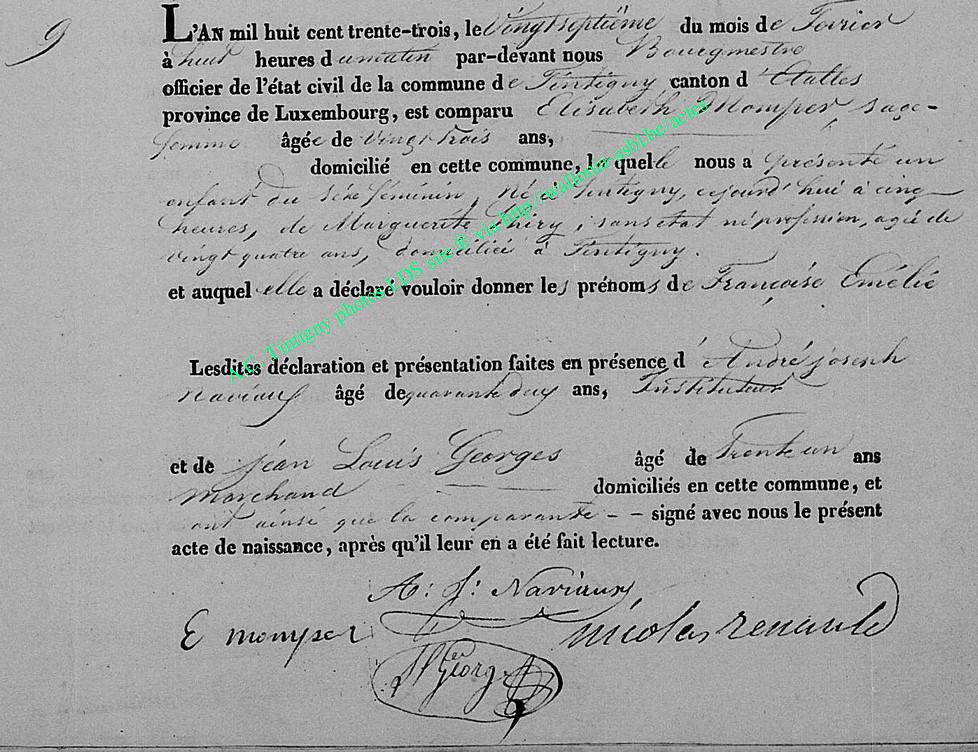 9
L'AN mil huit cent trente-trois, le Vingtseptième du mois de Fevrier
à huit heures du matin par-devant nous Bourgmestre
officier de l'état civil de la commune de Tintigny canton d'Etalles
province de Luxembourg, est comparu Elisabeth Momper, sage-
femme âgée de Vingt trois ans,
domicilié en cette commune, laquelle nous a présenté un
enfant du sexe féminin, Né à Tintigny, cejourd'hui à cinq
heures, de Marguerite Thiry, sans état ni profession, agée de
vingt quatre ans, domiciliée à Tintigny.
et auquel elle a déclaré vouloir donner les prénoms de Françoise Emélie
Lesdites déclaration et présentation faites en présence d'André joseph
Naviaux âgé de quarante deux ans, Instituteur
et de Jean Louis Georges âgé de Trente un ans
Marchand domiciliés en cette commune, et
ont ainsi que la comparante - - signé avec nous le présent
acte de naissance, après qu'il leur en a été fait lecture.
A: J: Naviaux
E momper
nicolas renauld
Georges
A.C. Tintigny photos LDS site E via http://wallonia-asbl.be/actes